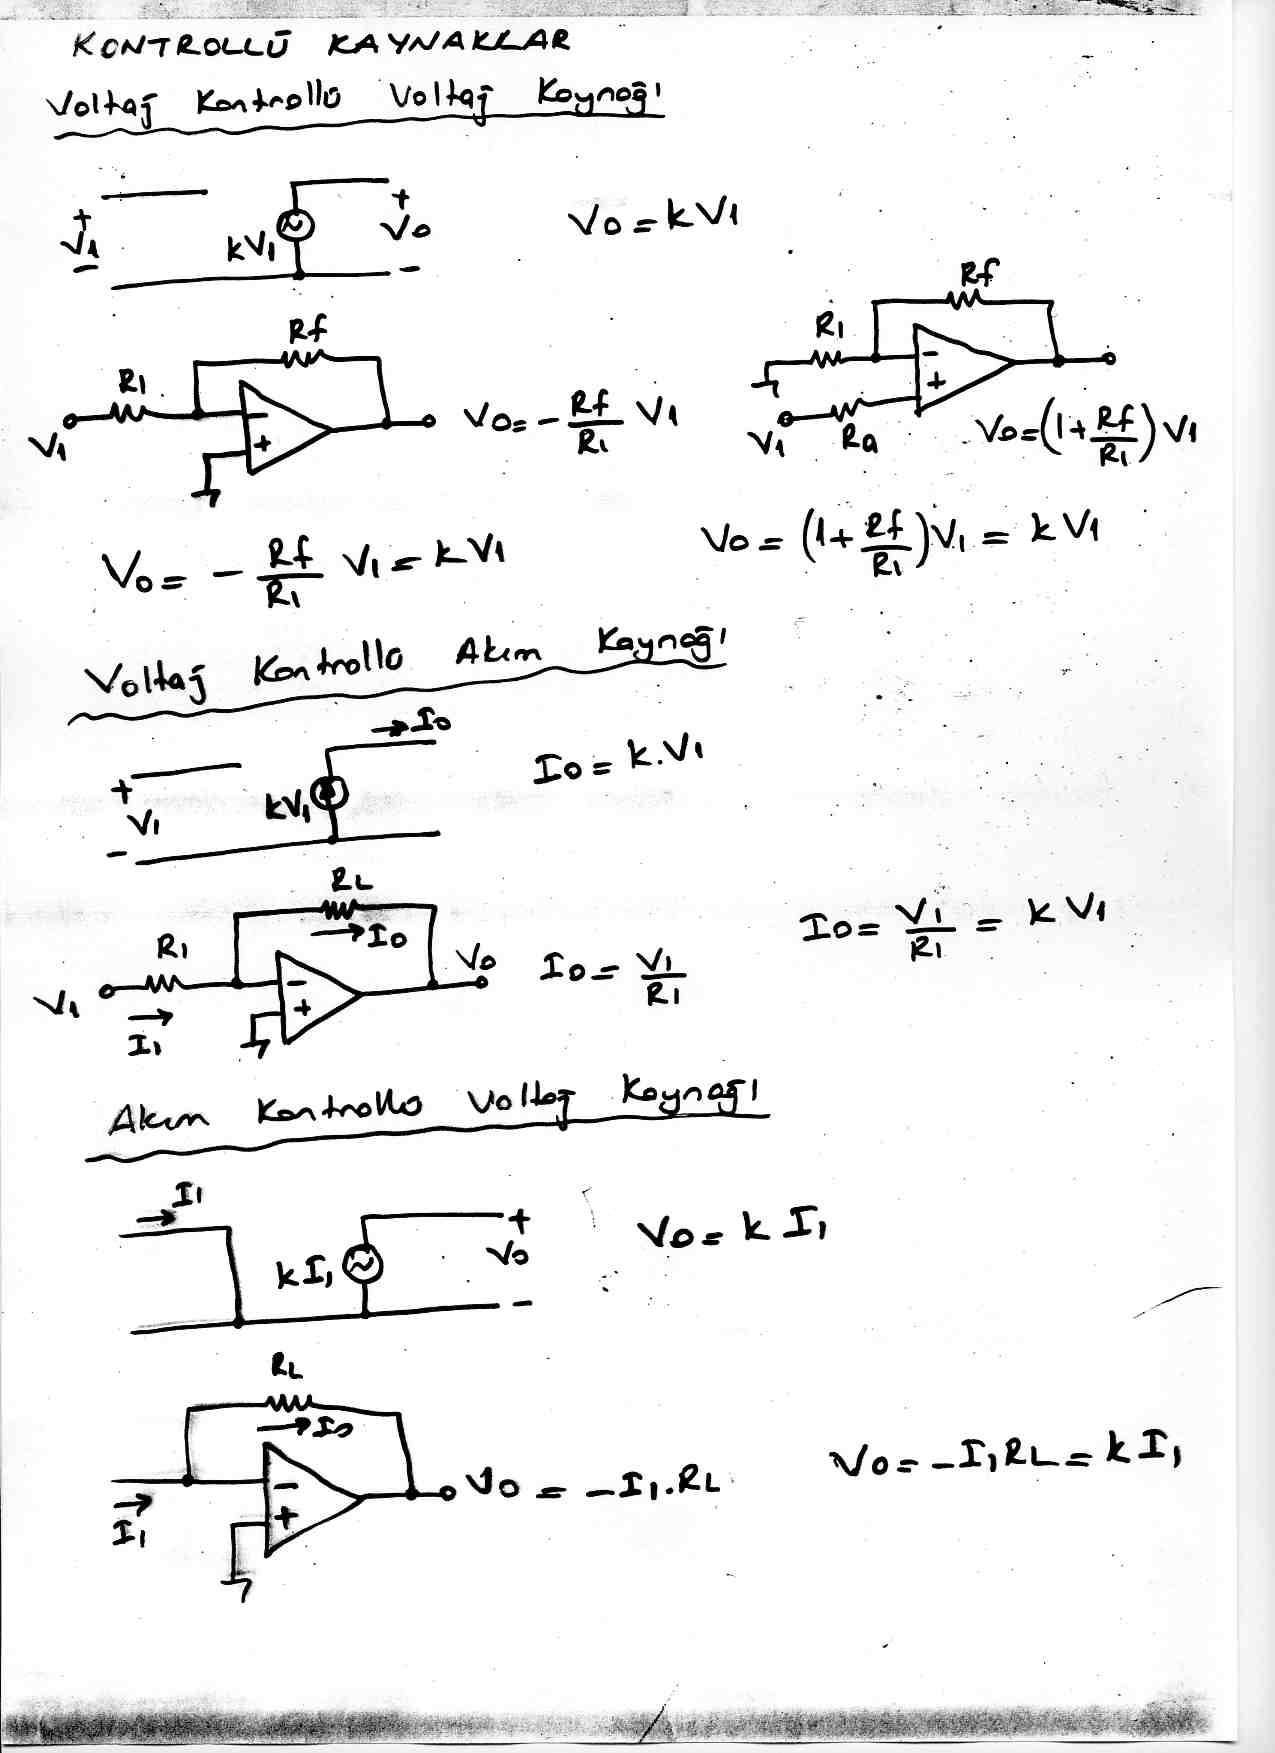 KONTROLLÜ KAYNAKLAR
Voltaj Kontrollü Voltaj Kaynağı
+ V1 − kV1 + V0 − V0 = kV1
R1 Rf − + V1 V0 = − Rf/R1 V1
R1 Rf − + V1 Ra V0 = (1 + Rf/R1) V1
V0 = − Rf/R1 V1 = kV1
V0 = (1 + Rf/R1) V1 = kV1
Voltaj Kontrollü Akım Kaynağı
+ V1 − kV1 → I0 I0 = k.V1
RL → I0 R1 V1 → I1 − + V0 I0 = V1/R1
I0 = V1/R1 = kV1
Akım Kontrollü Voltaj Kaynağı
I1 → kI1 + V0 − V0 = kI1
RL → I0 → I1 − + V0 = −I1.RL
V0 = −I1RL = kI1